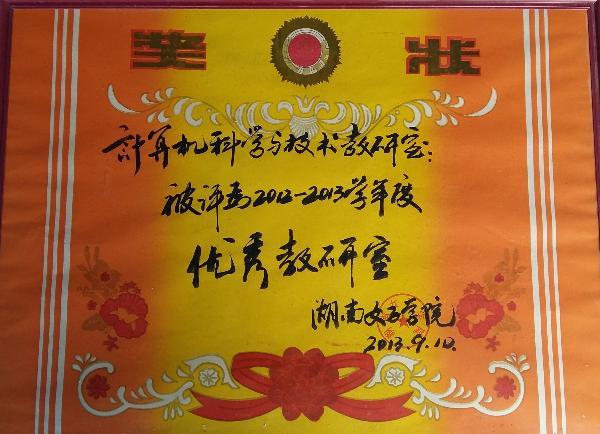 奖状
計算机科学与技术教研室:
被评为2012-2013学年度
优秀教研室
湖南文理学院
2013.9.10.